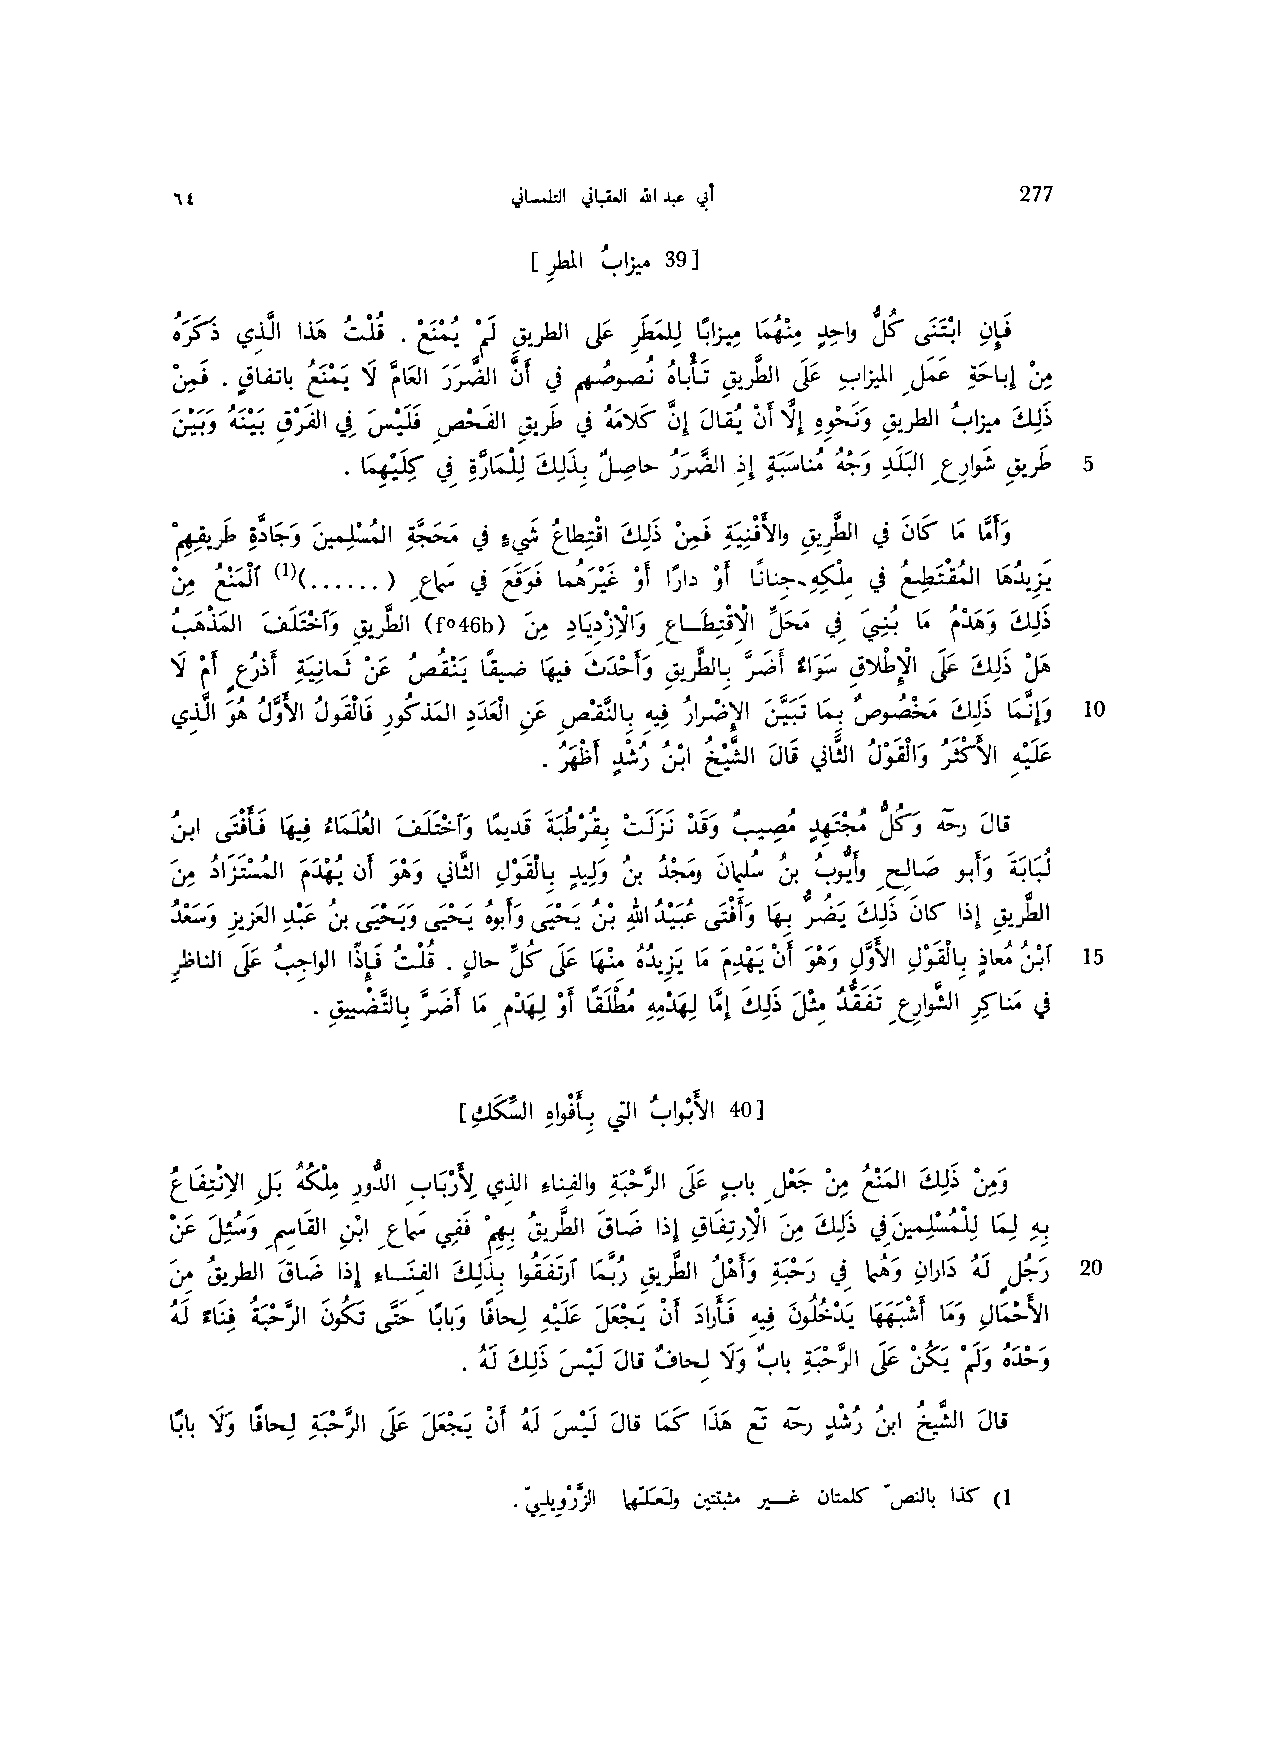 277 أبي عبد الله العقباني التلمساني ٦٤
[39 ميزابُ المطرِ]
فَإِنِ ابْتَنَى كُلُّ واحِدٍ مِنْهُمَا مِيزابًا لِلمَطَرِ عَلى الطريقِ لَمْ يُمْنَعْ . قُلْتُ هَذا الَّذِي ذَكَرَهُ
مِنْ إِباحَةِ عَمَلِ الميزابِ عَلَى الطَّرِيقِ تَأْباهُ نُصوصُهم فِي أَنَّ الضَّرَرَ العَامَّ لَا يَمْنَعُ باتفاقٍ . فَمِنْ
ذَلِكَ ميزابُ الطريقِ وَنَحْوِهِ إِلَّا أَنْ يُقالَ إِنَّ كَلامَهُ فِي طَرِيقِ الفَحْصِ فَلَيْسَ فِي الفَرْقِ بَيْنَهُ وَبَيْنَ
5 طَرِيقِ شَوارِعِ البَلَدِ وَجْهُ مُناسَبَةٍ إِذِ الضَّرَرُ حاصِلٌ بِذَلِكَ لِلْمَارَّةِ فِي كِلَيْهِمَا .
وَأَمَّا مَا كَانَ فِي الطَّرِيقِ والأَفْنِيَةِ فَمِنْ ذَلِكَ اقْتِطاعُ شَيءٍ فِي مَحَجَّةِ المُسْلِمينَ وَجَادَّةِ طَريقِهِمْ
يَزِيدُهَا المُقْتَطِعُ فِي مِلْكِهِ جِنانًا أَوْ دارًا أَوْ غَيْرَهُما فَوَقَعَ فِي سَماعِ (......)(1) آلمَنْعُ مِنْ
ذَلِكَ وَهَدْمُ مَا بُنِيَ فِي مَحَلِّ الاقْتِطَاعِ وَالازْدِيَادِ مِنَ (fº46b) الطَّرِيقِ وَآخْتَلَفَ المَذْهَبُ
هَلْ ذَلِكَ عَلَى الإِطْلاقِ سَوَاءٌ أَضَرَّ بِالطَّرِيقِ وَأَحْدَثَ فيهَا ضِيقًا يَنْقُصُ عَنْ ثَمانِيَةِ أَذْرُعٍ أَمْ لَا
10 وَإِنَّمَا ذَلِكَ مَخْصُوصٌ بِمَا تَبَيَّنَ الإضْرارُ فِيهِ بِالنَّقْصِ عَنِ العَدَدِ المَذكُورِ فَالْقَولُ الأَوَّلُ هُوَ الَّذي
عَلَيْهِ الأَكْثَرُ وَالْقَوْلُ الثَّانِي قَالَ الشَّيْخُ ابْنُ رُشْدٍ أَظْهَرُ .
قالَ رحهَ وَكُلُّ مُجْتَهِدٍ مُصِيبٌ وَقَدْ نَزَلَتْ بِقُرْطُبَةَ قَدِيمًا وَآخْتَلَفَ العُلَمَاءُ فِيهَا فَأَفْتَى ابنُ
لُبَابَةَ وَأَبو صَالِحٍ وأَيُّوبُ بنُ سُلَيْمَانَ ومَحمَّدُ بنُ وَلِيدٍ بِالْقَوْلِ الثَّاني وَهْوَ أَن يُهْدَمَ المُسْتَزادُ مِنَ
الطَّرِيقِ إِذا كانَ ذَلِكَ يَضُرُّ بِهَا وَأَفْتَى عُبَيْدُ اللهِ بْنُ يَحْيَى وَأبوهُ يَحْيَى وَيَحْيَى بنُ عَبْدِ العَزِيزِ وَسَعْدُ
15 آبْنُ مُعاذٍ بِالْقَوْلِ الأَوَّلِ وَهْوَ أَنْ يَهْدِمَ مَا يَزِيدُهُ مِنْهَا عَلَى كُلِّ حالٍ . قُلْتُ فَإِذًا الواجِبُ عَلَى الناظِرِ
فِي مَناكِرِ الشَّوارِعِ تَفَقُّدُ مِثْلِ ذَلِكَ إِمَّا لِهَدْمِهِ مُطْلَقًا أَوْ لِهَدْمِ مَا أَضَرَّ بِالتَّضْيِيقِ .
[40 الأَبْوابُ التي بِأَفْواهِ السِّكَكِ]
وَمِنْ ذَلِكَ المَنْعُ مِنْ جَعْلِ بابٍ عَلَى الرَّحْبَةِ والفِناءِ الذِي لِأَرْبَابِ الدُّورِ مِلْكُهُ بَلِ الانْتِفَاعُ
بِهِ لِمَا لِلْمُسْلِمِينَ فِي ذَلِكَ مِنَ الارتِفَاقِ إِذا ضَاقَ الطَّرِيقُ بِهِمْ فَفِي سَماعِ ابْنِ القَاسِمِ وَسُئِلَ عَنْ
20 رَجُلٍ لَهُ دَارانِ وَهُما فِي رَحْبَةٍ وَأَهْلُ الطَّرِيقِ رُبَّمَا آرْتَفَقُوا بِذَلِكَ الفِنَاءِ إِذا ضَاقَ الطريقُ مِنَ
الأَحْمَالِ وَمَا أَشْبَهَهَا يَدْخُلُونَ فيهِ فَأَرَادَ أَنْ يَجْعَلَ عَلَيْهِ لِحافًا وَبَابًا حَتَّى تَكُونَ الرَّحْبَةُ فِنَاءً لَهُ
وَحْدَهُ وَلَمْ يَكُنْ عَلَى الرَّحْبَةِ بابٌ وَلَا لِحافٌ قالَ لَيْسَ ذَلِكَ لَهُ .
قالَ الشَّيْخُ ابنُ رُشْدٍ رحهَ تَع هَذَا كَمَا قالَ لَيْسَ لَهُ أَنْ يَجْعَلَ عَلَى الرَّحْبَةِ لِحافًا وَلَا بابًا
1) كذا بالنصّ كلمتان غير مثبتتين وَلَعَلَّهَا الزَّرْوِيلِيّ.